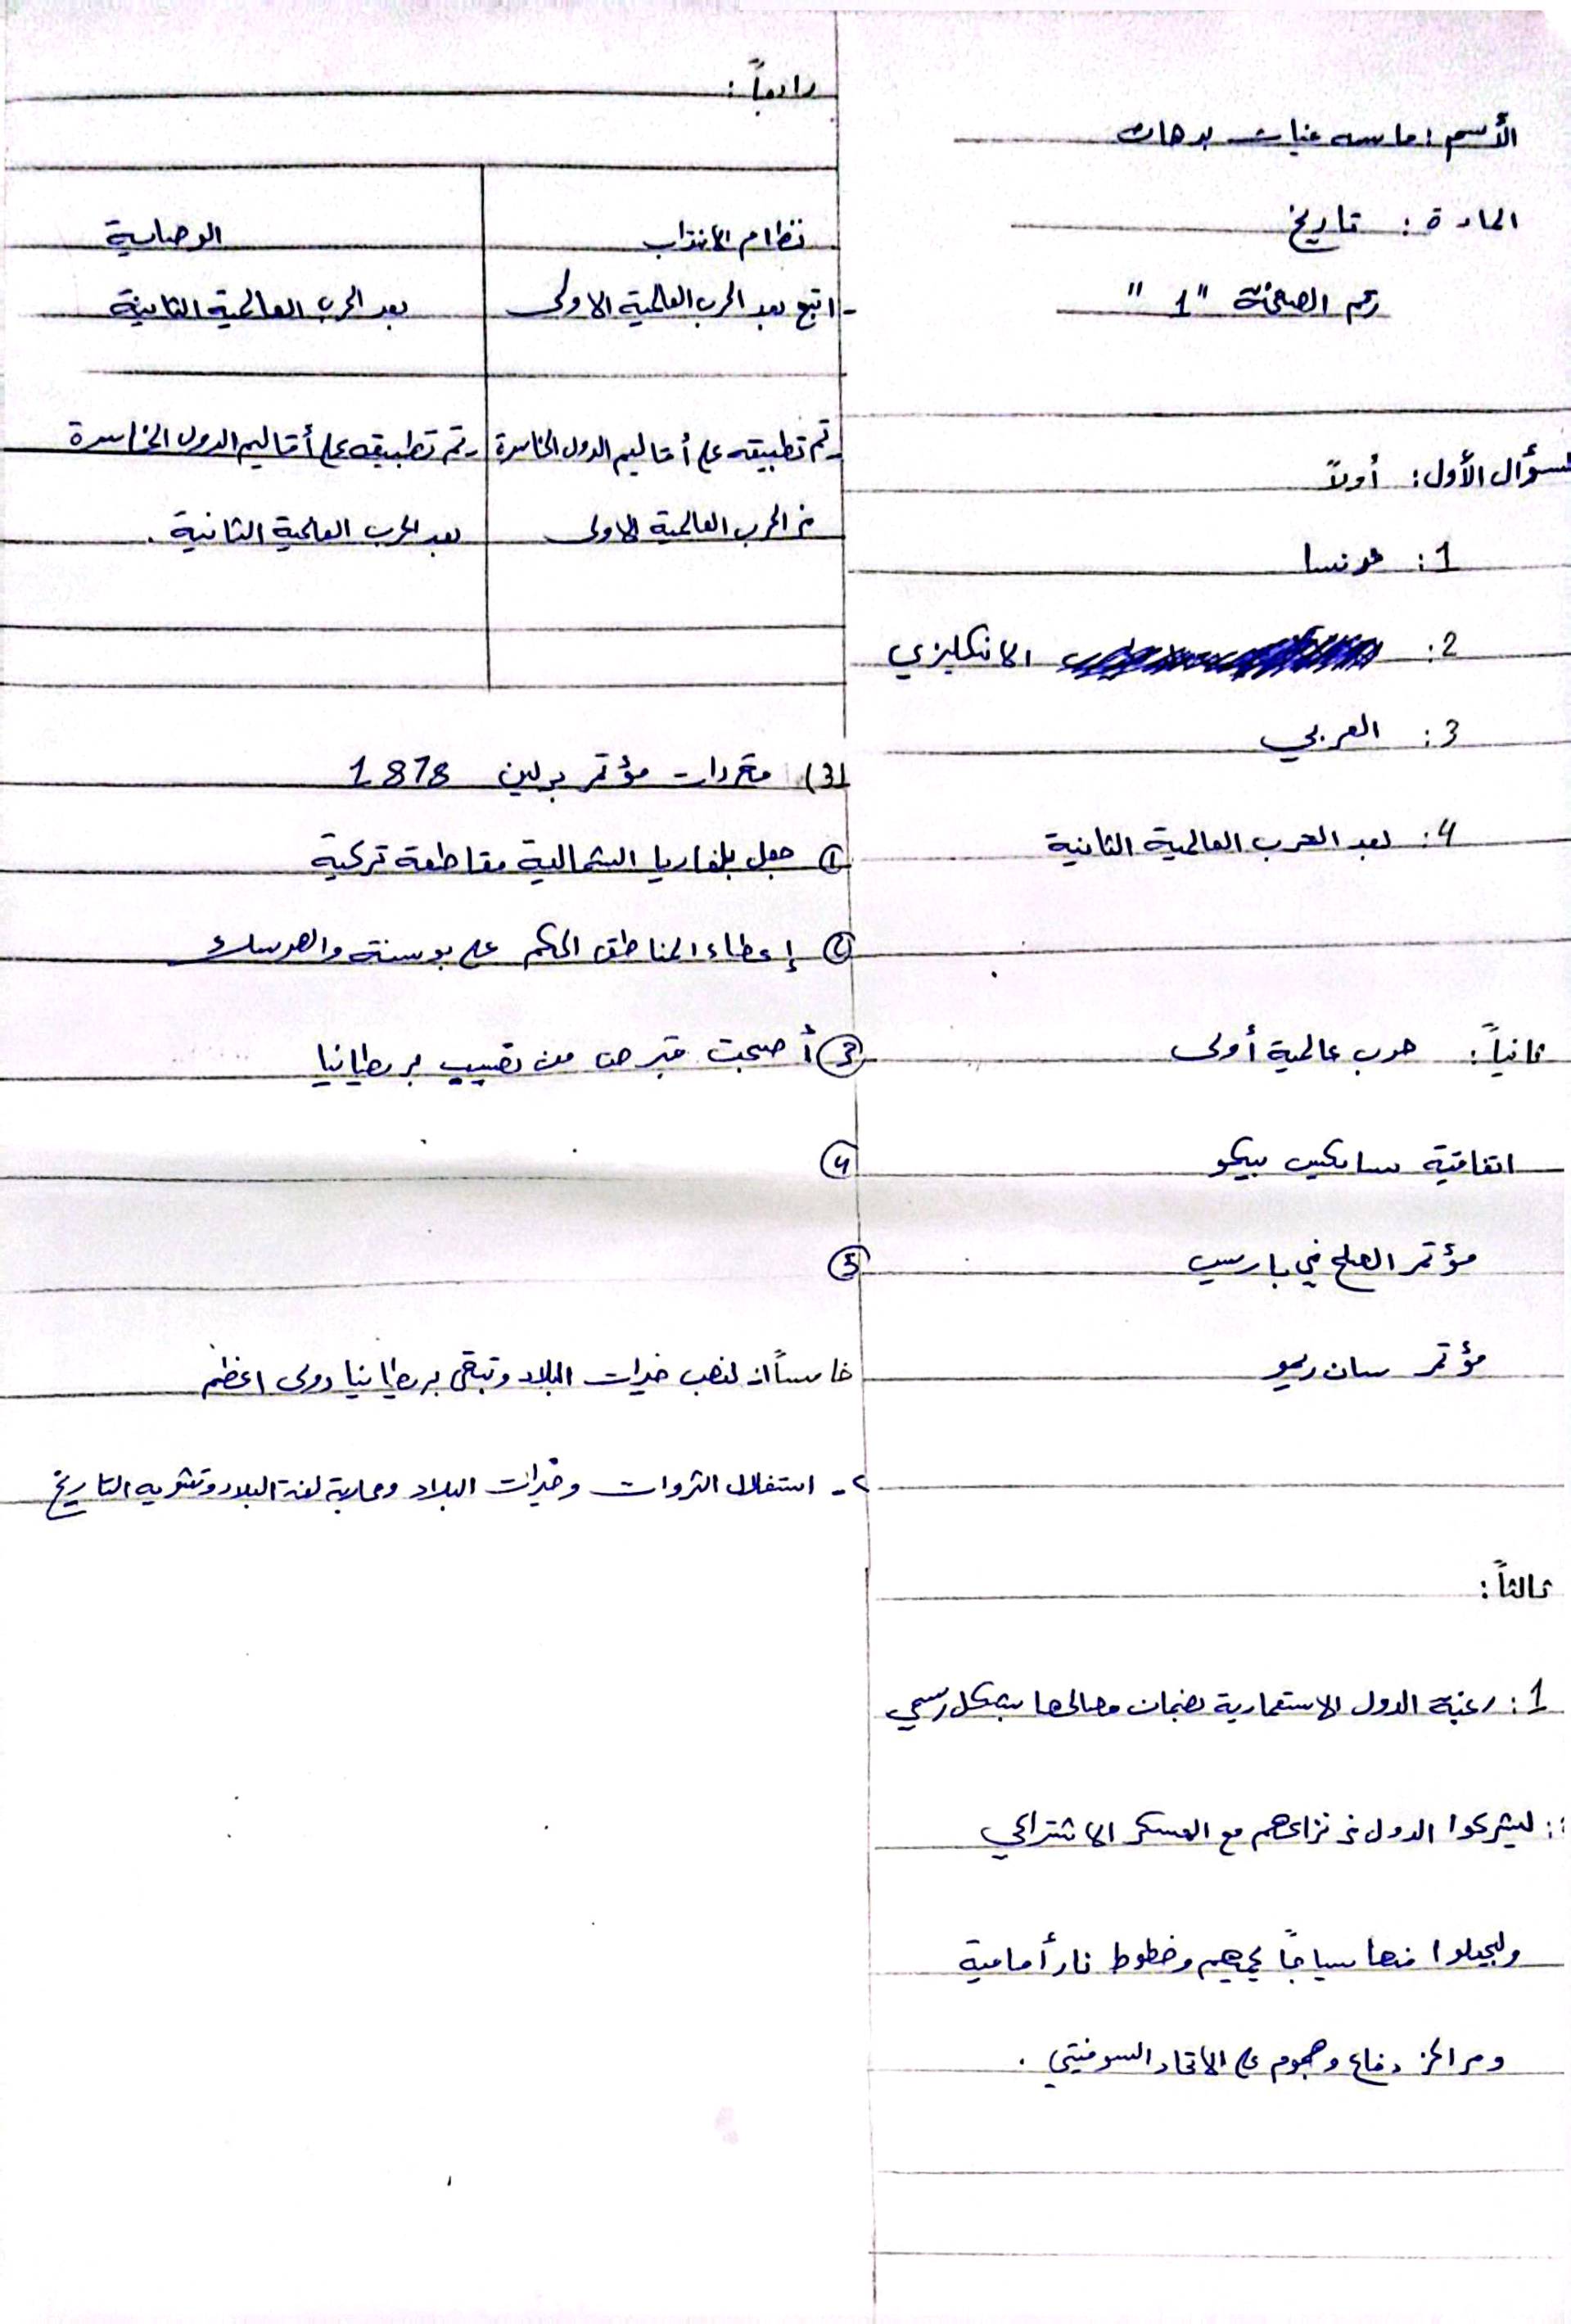 الأسم : ماسه غياث برهان
المادة : تاريخ
رقم الصفحة "1"
السؤال الأول : أولاً
1 : فرنسا
2 : الانكليزي
3 : العربي
4 : بعد الحرب العالمية الثانية
ثانياً : حرب عالمية أولى
اتفاقية سايكس بيكو
مؤتمر الصلح في باريس
مؤتمر سان ريمو
ثالثاً :
1 : رغبة الدول الاستعمارية بضمان مصالحها بشكل رسمي
: ليشركوا الدول في نزاعهم مع العسكر الاشتراكي
وليجعلوا منها سياجاً يحميهم وخطوط نار أمامية
ومراكز دفاع وهجوم على الاتحاد السوفيتي .
رابعاً :
نظام الانتداب | الوصاية
- اتبع بعد الحرب العالمية الاولى | بعد الحرب العالمية الثانية
- تم تطبيقه على أقاليم الدول الخاسرة | - تم تطبيقه على أقاليم الدول الخاسرة
في الحرب العالمية الاولى | بعد الحرب العالمية الثانية .
(3) مقررات مؤتمر برلين 1878
① جعل بلغاريا الشمالية مقاطعة تركية
② إعطاء المناطق الحكم على بوسنة والهرسك
③ أصبحت قبرص من نصيب بريطانيا
④
⑤
خامساً : لنهب خيرات البلاد وتبقى بريطانيا دولى اعظم
٢- استغلال الثروات وخيرات البلاد ومحاربة لغة البلاد وتشويه التاريخ